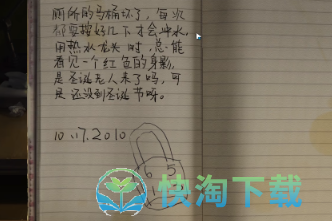 厕所的马桶坏了，每次
都要按好几下才会冲水，
用热水龙头时，总能
看见一个红色的身影，
是圣诞老人来了吗，可
是还没到圣诞节呀。
10.17.2010
6 5
快淘下载